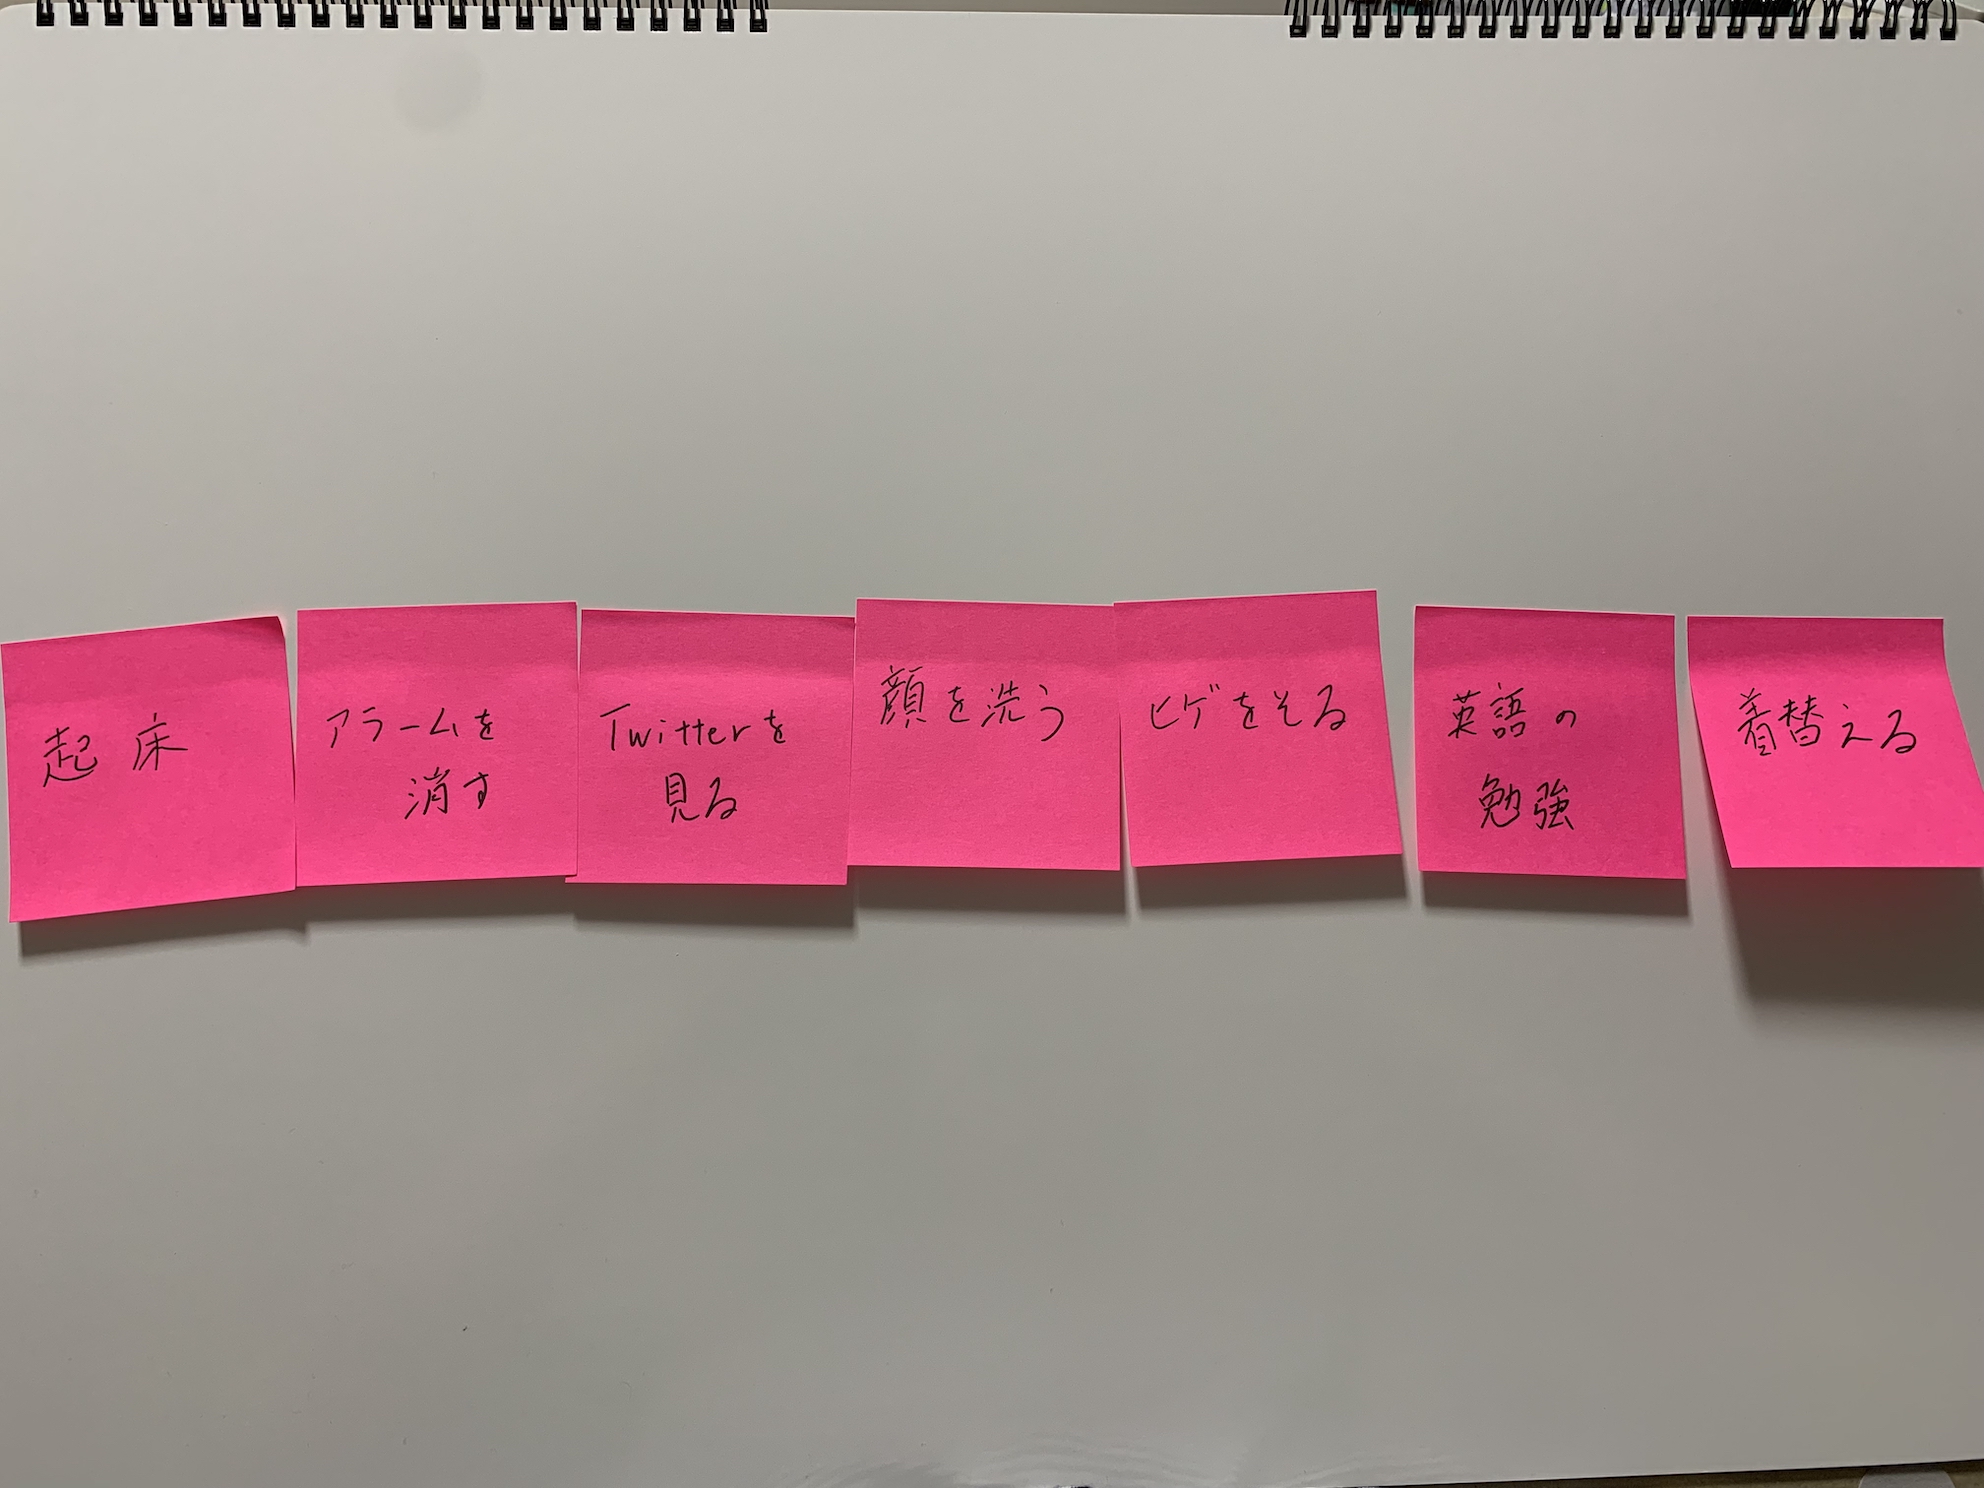 起床
アラームを
消す
Twitterを
見る
顔を洗う
ヒゲをそる
英語の
勉強
着替える